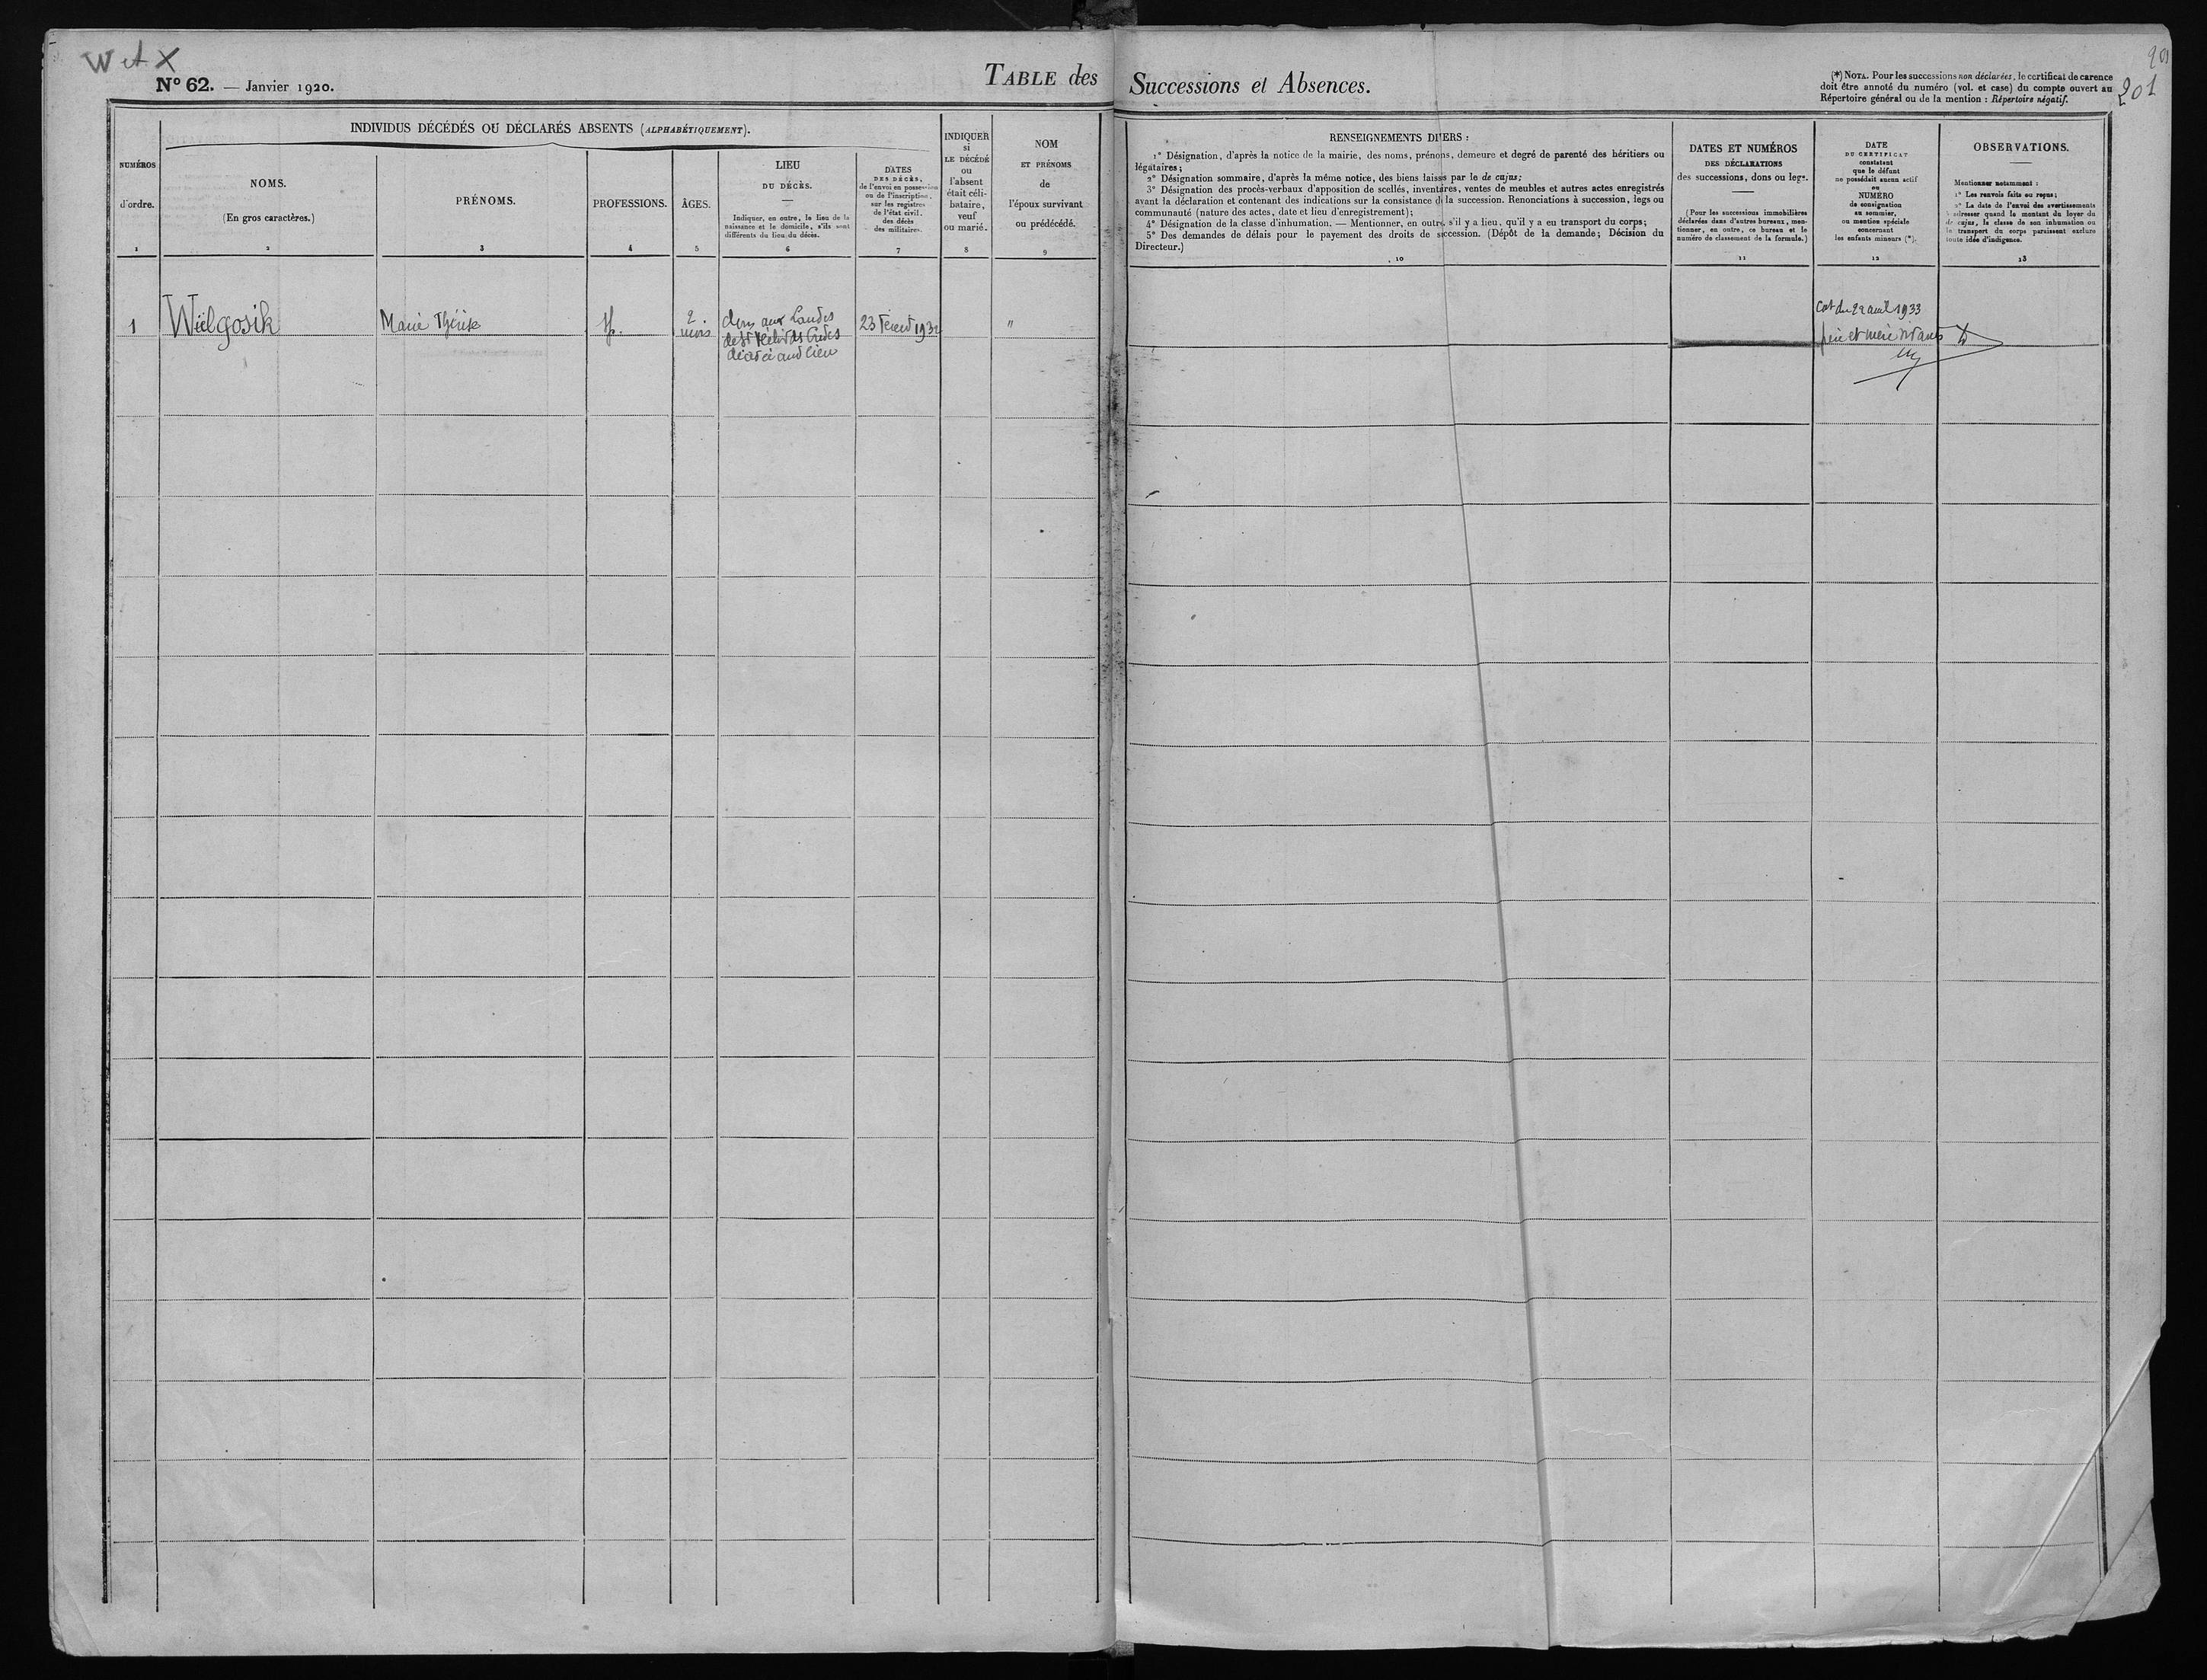 W et X
Nº 62. — Janvier 1920.
TABLE des Successions et Absences.
(*) NOTA. Pour les successions non déclarées, le certificat de carence
doit être annoté du numéro (vol. et case) du compte ouvert au
Répertoire général ou de la mention : Répertoire négatif.
201
201
NUMÉROS
d'ordre.
1
INDIVIDUS DÉCÉDÉS OU DÉCLARÉS ABSENTS (ALPHABÉTIQUEMENT).
NOMS.
(En gros caractères.)
2
PRÉNOMS.
3
PROFESSIONS.
4
ÂGES.
5
LIEU
DU DÉCÈS.
Indiquer, en outre, le lieu de la
naissance et le domicile, s'ils sont
différents du lieu du décès.
6
DATES
DES DÉCÈS,
de l'envoi en possession
ou de l'inscription,
sur les registres
de l'état civil,
des décès
des militaires.
7
INDIQUER
si
LE DÉCÉDÉ
ou
l'absent
était céli-
bataire,
veuf
ou marié.
8
NOM
ET PRÉNOMS
de
l'époux survivant
ou prédécédé.
9
RENSEIGNEMENTS DIVERS :
1° Désignation, d'après la notice de la mairie, des noms, prénoms, demeure et degré de parenté des héritiers ou
légataires;
2° Désignation sommaire, d'après la même notice, des biens laissés par le de cujus;
3° Désignation des procès-verbaux d'apposition de scellés, inventaires, ventes de meubles et autres actes enregistrés
avant la déclaration et contenant des indications sur la consistance de la succession. Renonciations à succession, legs ou
communauté (nature des actes, date et lieu d'enregistrement);
4° Désignation de la classe d'inhumation. — Mentionner, en outre, s'il y a lieu, qu'il y a eu transport du corps;
5° Des demandes de délais pour le payement des droits de succession. (Dépôt de la demande; Décision du
Directeur.)
10
DATES ET NUMÉROS
DES DÉCLARATIONS
des successions, dons ou legs.
(Pour les successions immobilières
déclarées dans d'autres bureaux, men-
tionner, en outre, ce bureau et le
numéro de classement de la formule.)
11
DATE
DU CERTIFICAT
constatant
que le défunt
ne possédait aucun actif
ou
NUMÉRO
de consignation
au sommier,
ou mention spéciale
concernant
les enfants mineurs (*).
12
OBSERVATIONS.
Mentionner notamment :
1° Les renvois faits ou reçus;
2° La date de l'envoi des avertissements
à adresser quand le montant du loyer du
de cujus, la classe de son inhumation ou
le transport du corps paraissent exclure
toute idée d'indigence.
13
1
Wielgosik
Marie Thérèse
sp.
2
mois
aux Landes
décédée aud lieu
23 1932
"
Cert du 22 avril 1933
père et mère